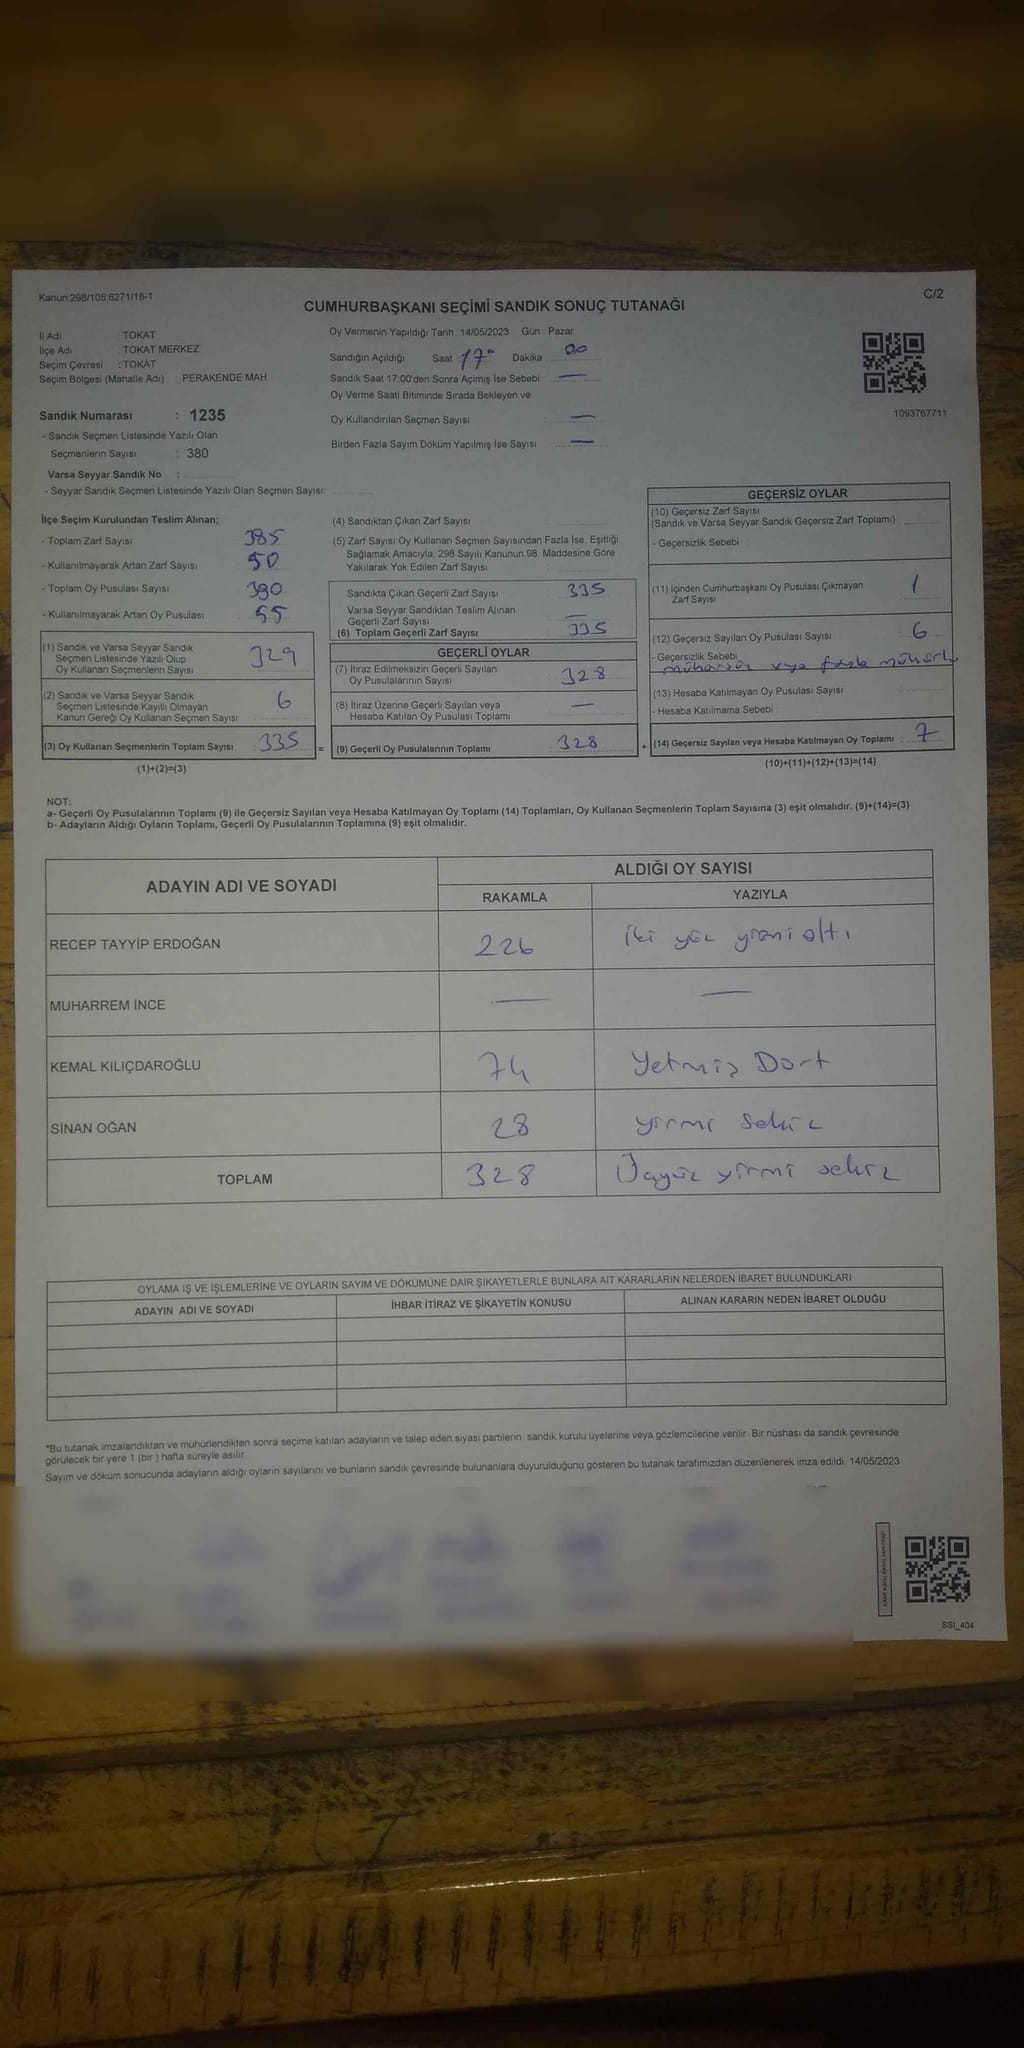 Kanun:298/105;6271/18-1
C/2
CUMHURBAŞKANI SEÇİMİ SANDIK SONUÇ TUTANAĞI
İl Adı : TOKAT
İlçe Adı : TOKAT MERKEZ
Seçim Çevresi : TOKAT
Seçim Bölgesi (Mahalle Adı) : PERAKENDE MAH.
Oy Vermenin Yapıldığı Tarih : 14/05/2023 Gün : Pazar
Sandığın Açıldığı Saat : 17 Dakika 00
Sandık Saat 17:00'den Sonra Açımış İse Sebebi : —
Oy Verme Saati Bitiminde Sırada Bekleyen ve
Oy Kullandırılan Seçmen Sayısı : —
Birden Fazla Sayım Döküm Yapılmış İse Sayısı : —
1093767711
Sandık Numarası : 1235
- Sandık Seçmen Listesinde Yazılı Olan
Seçmenlerin Sayısı : 380
Varsa Seyyar Sandık No :
- Seyyar Sandık Seçmen Listesinde Yazılı Olan Seçmen Sayısı:
İlçe Seçim Kurulundan Teslim Alınan;
- Toplam Zarf Sayısı 385
- Kullanılmayarak Artan Zarf Sayısı 50
- Toplam Oy Pusulası Sayısı 390
- Kullanılmayarak Artan Oy Pusulası 55
(1) Sandık ve Varsa Seyyar Sandık
Seçmen Listesinde Yazılı Olup
Oy Kullanan Seçmenlerin Sayısı 329
(2) Sandık ve Varsa Seyyar Sandık
Seçmen Listesinde Kayıtlı Olmayan
Kanun Gereği Oy Kullanan Seçmen Sayısı 6
(3) Oy Kullanan Seçmenlerin Toplam Sayısı 335 =
(1)+(2)=(3)
(4) Sandıktan Çıkan Zarf Sayısı
(5) Zarf Sayısı Oy Kullanan Seçmen Sayısından Fazla İse, Eşitliği
Sağlamak Amacıyla, 298 Sayılı Kanunun 98. Maddesine Göre
Yakılarak Yok Edilen Zarf Sayısı
Sandıkta Çıkan Geçerli Zarf Sayısı 335
Varsa Seyyar Sandıktan Teslim Alınan
Geçerli Zarf Sayısı —
(6) Toplam Geçerli Zarf Sayısı 335
GEÇERLİ OYLAR
(7) İtiraz Edilmeksizin Geçerli Sayılan
Oy Pusulalarının Sayısı 328
(8) İtiraz Üzerine Geçerli Sayılan veya
Hesaba Katılan Oy Pusulası Toplamı —
(9) Geçerli Oy Pusulalarının Toplamı 328 +
GEÇERSİZ OYLAR
(10) Geçersiz Zarf Sayısı
(Sandık ve Varsa Seyyar Sandık Geçersiz Zarf Toplamı)
- Geçersizlik Sebebi
(11) İçinden Cumhurbaşkanı Oy Pusulası Çıkmayan
Zarf Sayısı 1
(12) Geçersiz Sayılan Oy Pusulası Sayısı 6
- Geçersizlik Sebebi
veya fazla mühürlü
(13) Hesaba Katılmayan Oy Pusulası Sayısı
- Hesaba Katılmama Sebebi
(14) Geçersiz Sayılan veya Hesaba Katılmayan Oy Toplamı : 7
(10)+(11)+(12)+(13)=(14)
NOT:
a- Geçerli Oy Pusulalarının Toplamı (9) ile Geçersiz Sayılan veya Hesaba Katılmayan Oy Toplamı (14) Toplamları, Oy Kullanan Seçmenlerin Toplam Sayısına (3) eşit olmalıdır. (9)+(14)=(3)
b- Adayların Aldığı Oyların Toplamı, Geçerli Oy Pusulalarının Toplamına (9) eşit olmalıdır.
ADAYIN ADI VE SOYADI
ALDIĞI OY SAYISI
RAKAMLA YAZIYLA
RECEP TAYYİP ERDOĞAN 226 iki yüz yirmi altı
MUHARREM İNCE — —
KEMAL KILIÇDAROĞLU 74 Yetmiş Dört
SİNAN OĞAN 28 yirmi sekiz
TOPLAM 328 Üçyüz yirmi sekiz
OYLAMA İŞ VE İŞLEMLERİNE VE OYLARIN SAYIM VE DÖKÜMÜNE DAİR ŞİKAYETLERLE BUNLARA AİT KARARLARIN NELERDEN İBARET BULUNDUKLARI
ADAYIN ADI VE SOYADI
İHBAR İTİRAZ VE ŞİKAYETİN KONUSU
ALINAN KARARIN NEDEN İBARET OLDUĞU
*Bu tutanak imzalandıktan ve mühürlendikten sonra seçime katılan adayların ve talep eden siyasi partilerin sandık kurulu üyelerine veya gözlemcilerine verilir. Bir nüshası da sandık çevresinde
görülecek bir yere 1 (bir ) hafta süreyle asılır.
Sayım ve döküm sonucunda adayların aldığı oyların sayılarını ve bunların sandık çevresinde bulunanlara duyurulduğunu gösteren bu tutanak tarafımızdan düzenlenerek imza edildi. 14/05/2023
SSI_404